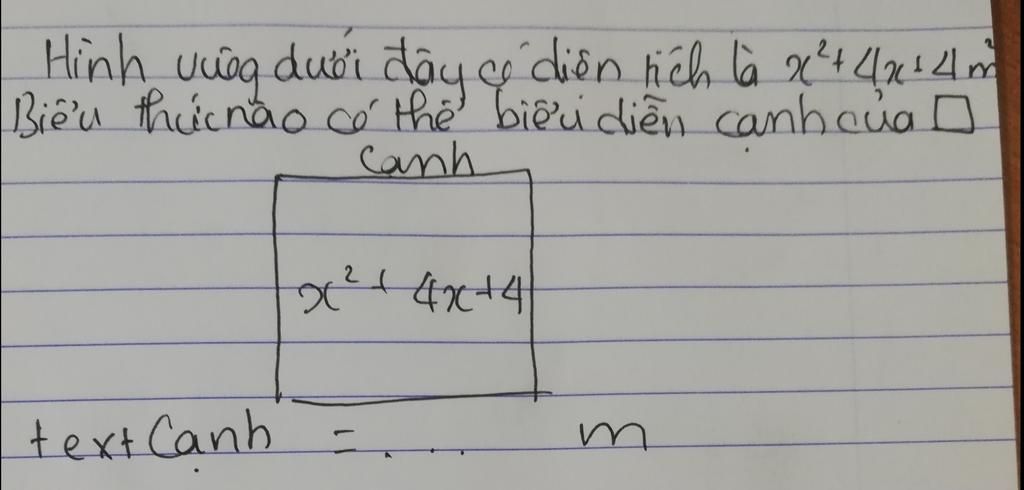 Hình vuông dưới đây có diện tích là x²+4x+4 m²
Biểu thức nào có thể biểu diễn cạnh của □
Canh
x² + 4x+4
text Cạnh = ... m